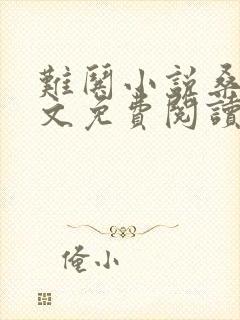 難鬧小說桑
文免費閱讀
俺小